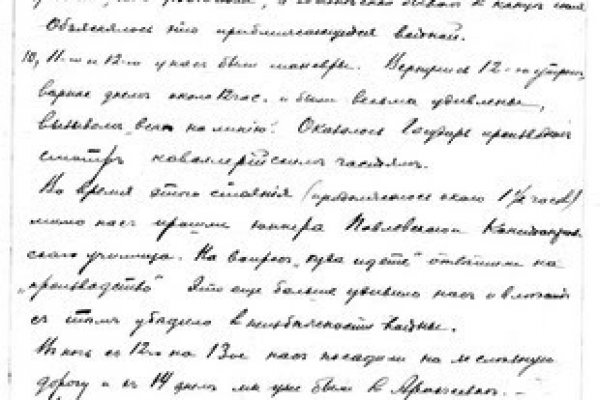 Объяснялось это приближающейся войной.
10, 11-го и 12-го у нас были маневры. Вернулись 12-го утром,
вернее днем около 12 час. и были весьма удивлены,
вызовом „всех на линию". Оказалось Государь производил
смотръ кавалерийским частям.
Во время этого стояния (продолжалось около 1½ часов)
мимо нас прошли юнкера Павловского
училища. На вопрос „куда идете" отвечали на
„производство" Это еще больше удивило нас и
с тем убедило в неизбежности войны.
В ночь с 12го на 13ое нас посадили на железную
дорогу и в 14 днем мы уже были в